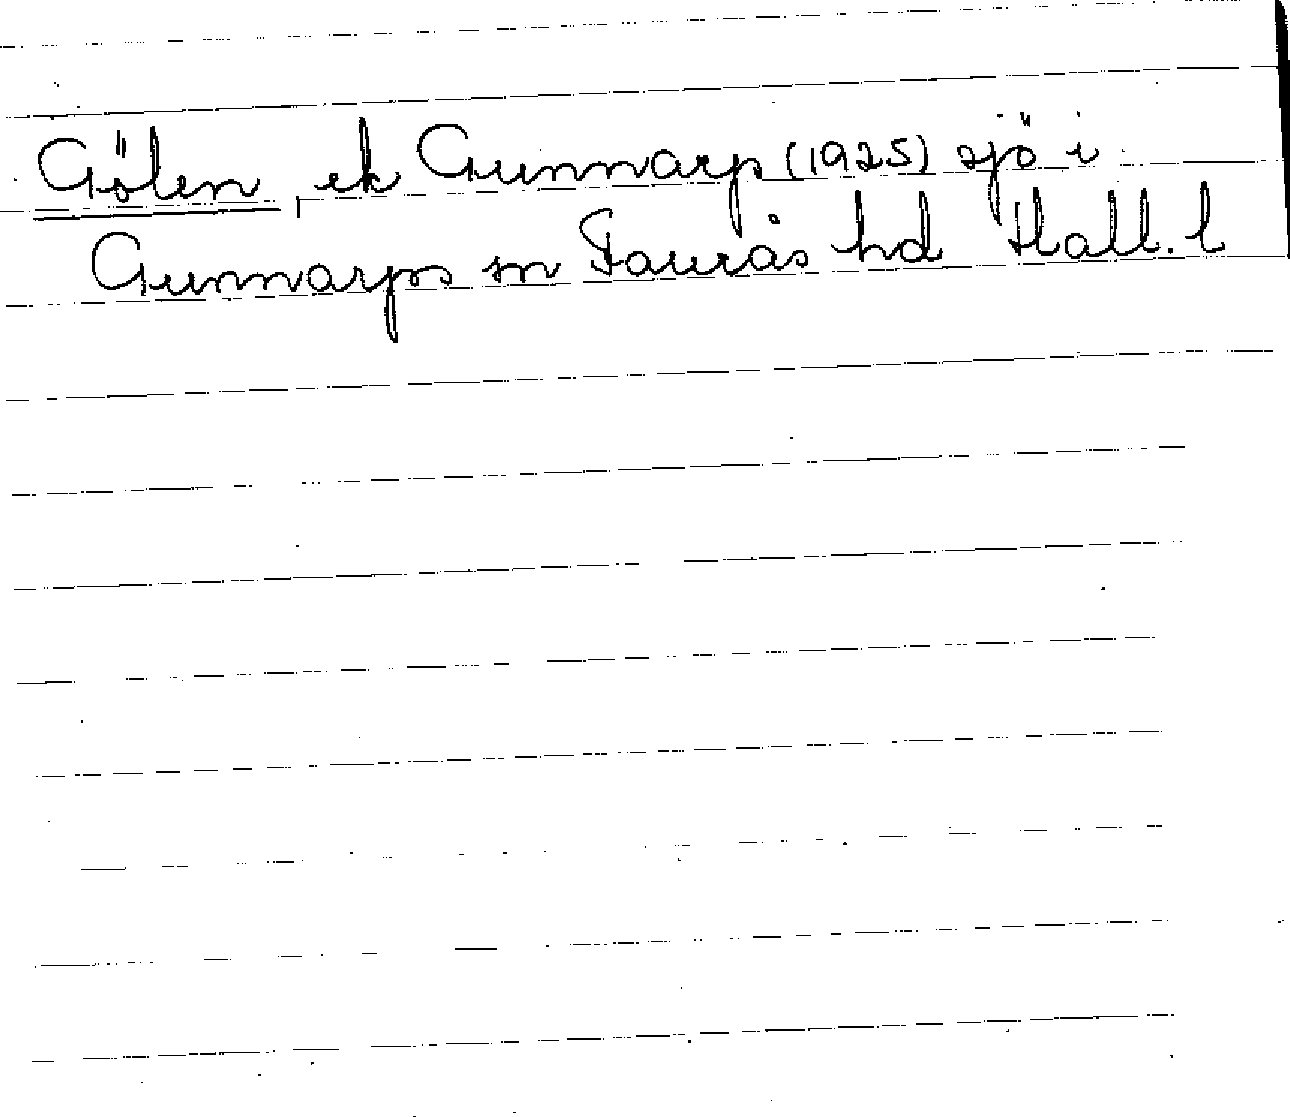 Gölen, ek Gunnarp (1925) sjö i
Gunnarps sn Faurås hd Hall. l